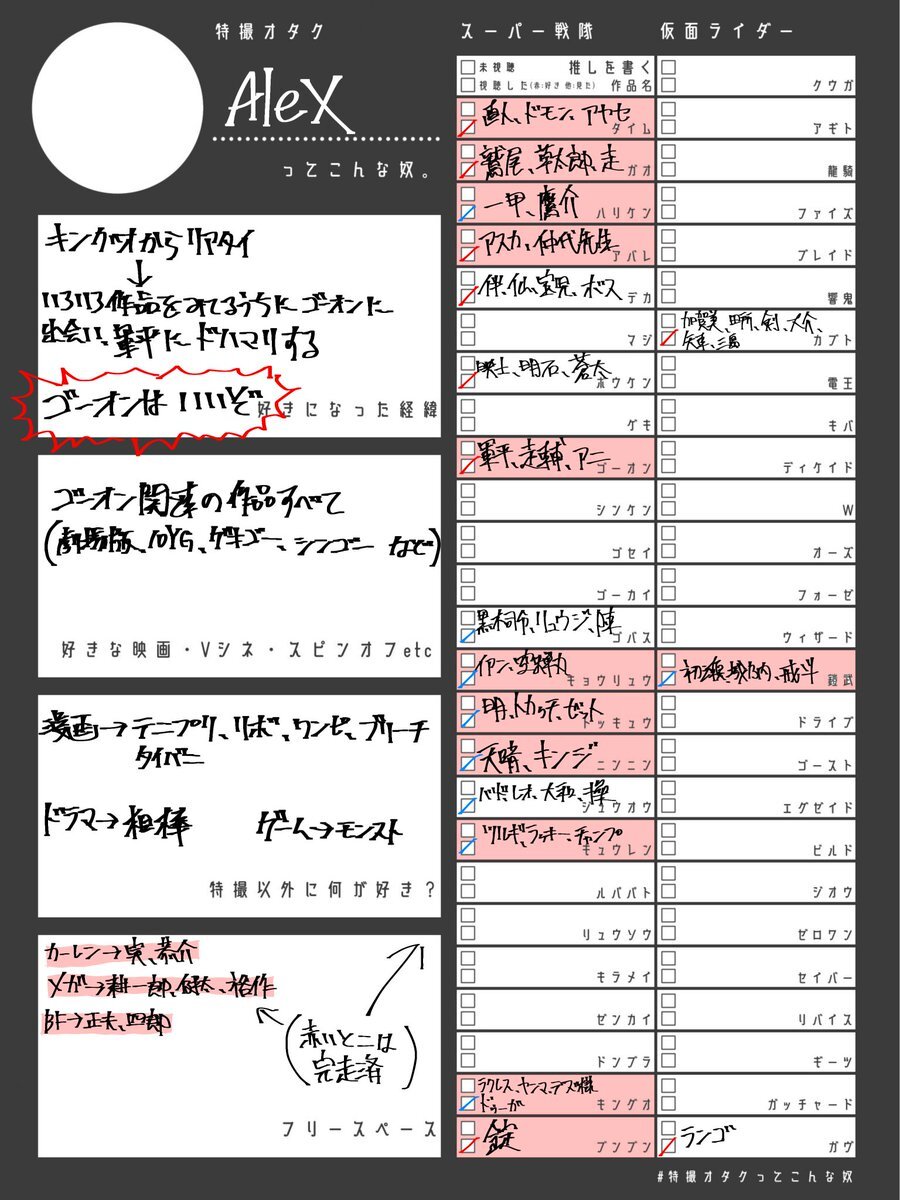 特撮オタク
Alex
ってこんな奴。
キングオからリアタイ
↓
いろいろ作品をみてるうちにゴーオンに
出会い、軍平にドハマりする
ゴーオンはいいぞ
好きになった経緯
ゴーオン関連の作品すべて
(劇場版、10YG、ゲキゴー、シンゴー など)
好きな映画・Vシネ・スピンオフetc
漫画→テニプリ、リボ、ワンピ、ブリーチ
タイバニ
ドラマ→相棒
ゲーム→モンスト
特撮以外に何が好き?
カーレン→実、恭介
メガ→耕一郎、健太、裕作
BF→正夫、四郎
(赤いとこは
完走済)
フリースペース
スーパー戦隊
未視聴
推しを書く
視聴した(赤:好き 他:見た)
作品名
直人、ドモン、アヤセ
タイム
鷲尾、草太郎、走
ガオ
一甲、鷹介
ハリケン
アスカ、仲代先生
アバレ
伴、仙、宝児、ボス
デカ
マジ
映士、明石、蒼太
ボウケン
ゲキ
軍平、走輔、アニ
ゴーオン
シンケン
ゴセイ
ゴーカイ
黒木司令、リュウジ、陣
ゴバス
イアン、空蝉丸
キョウリュウ
明、トカッチ、ゼット
トッキュウ
天晴、キンジ
ニンニン
バド、レオ、大和、操
ジュウオウ
ツルギ、ラッキー、チャンプ
キュウレン
ルパパト
リュウソウ
キラメイ
ゼンカイ
ドンブラ
ラクレス、ヤンマ、デズ様
ドゥーガ
キングオ
錠
ブンブン
仮面ライダー
クウガ
アギト
龍騎
ファイズ
ブレイド
響鬼
加賀美、田所、剣、大介、
矢車、三島
カブト
電王
キバ
ディケイド
W
オーズ
フォーゼ
ウィザード
初瀬、城乃内、戒斗
鎧武
ドライブ
ゴースト
エグゼイド
ビルド
ジオウ
ゼロワン
セイバー
リバイス
ギーツ
ガッチャード
ランゴ
ガヴ
#特撮オタクってこんな奴